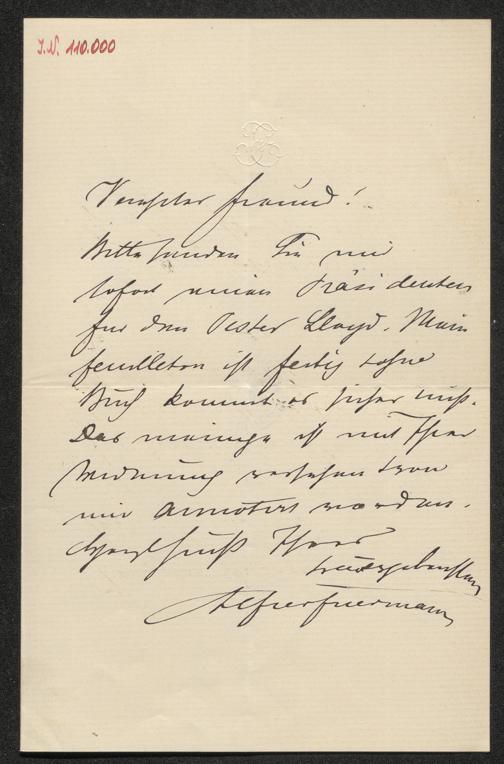 I.N. 110.000
Verehrter Freund!
Bitte senden Sie mir
sofort einen Präsidenten
für den Pester Lloyd. Mein
feuilleton ist fertig & ohne
Buch kommt es sicher nicht.
Das meinige ist mit Ihrer
Widmung versehen & von
mir annotirt worden.
Ihres
treuergebensten